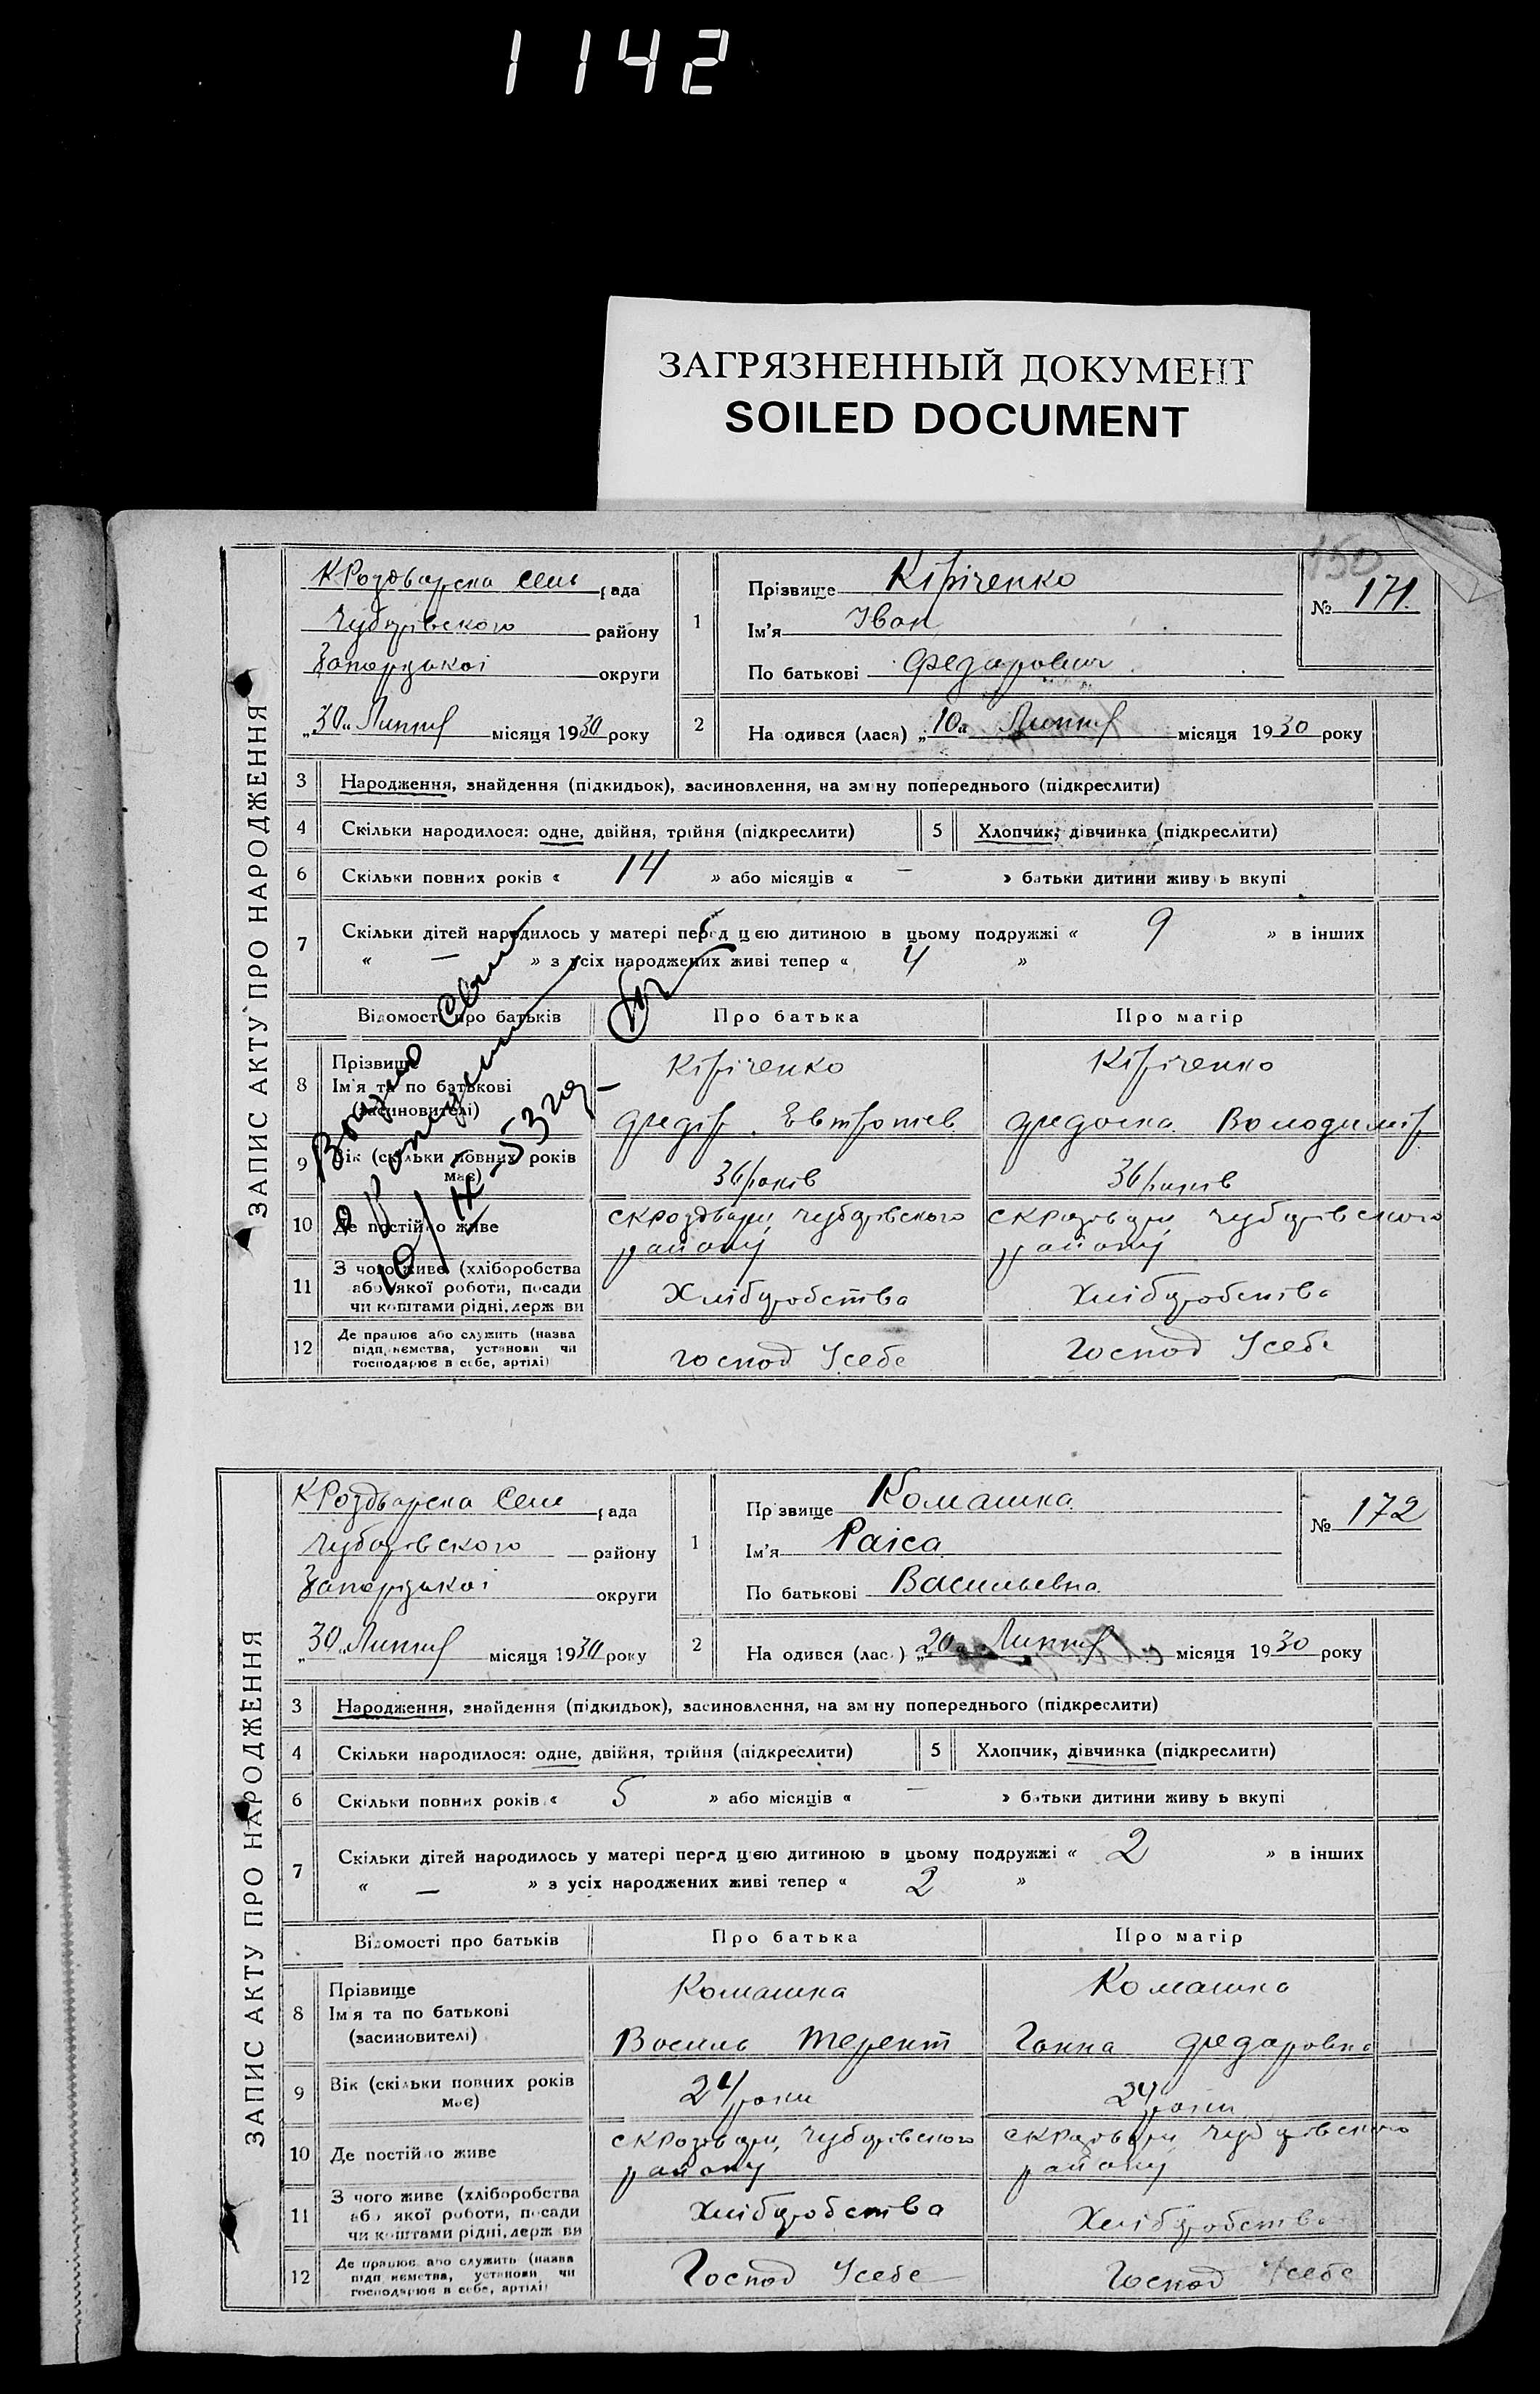 1142
ЗАГРЯЗНЕННЫЙ ДОКУМЕНТ
SOILED DOCUMENT
150
ЗАПИС АКТУ ПРО НАРОДЖЕННЯ
КРоздорска Сель рада
Чубарівского району
Запоріжкоі округи
„30“ Липня місяця 1930 року
1
Прізвище Кіріченко
Ім'я Іван
По батькові Федарович
№ 171.
2
На одився (лася) „10“ Липня місяця 1930 року
3 Народження, знайдення (підкидьок), засиновлення, на зм ну попереднього (підкреслити)
4 Скільки народилося: одне, двійня, трійня (підкреслити) 5 Хлопчик, дівчинка (підкреслити)
6 Скільки повних років « 14 » або місяців « – » батьки дитини живу ь вкупі
7 Скільки дітей народилось у матері перед цією дитиною в цьому подружжі « 9 » в інших
« — » з усіх народжених живі тепер « 4 »
Відомості про батьків Про батька Про матір
8 Прізвище
Ім'я та по батькові
(засиновителі)
Кіріченко
Федір Евтропіев
Кіріченко
Федоска Володимір
9 Вік (скільки повних років має) 36 років 36 років
10 Де постійно живе
с КРоздори, Чубарівского
району
с КРоздори, Чубарівского
району
11 З чого живе (хліборобства
або якої роботи, посади
чи коштами рідні, держ ви
Хліборобства Хліборобства
12 Де працює або служить (назва
підп иємства, установи чи
господарює в себе, артілі)
Господ Усебе Господ Усебе
10/IX-53 год
ЗАПИС АКТУ ПРО НАРОДЖЕННЯ
КРоздорска Сель рада
Чубарівского району
Запоріжкоі округи
„30“ Липня місяця 1930 року
1
Пр звище Комашка
Ім'я Раіса
По батькові Васильевна
№ 172
2
На одився (лас ) „20“ Липня місяця 1930 року
3 Народження, знайдення (підкидьок), засиновлення, на зм ну попереднього (підкреслити)
4 Скільки народилося: одне, двійня, трійня (підкреслити) 5 Хлопчик, дівчинка (підкреслити)
6 Скільки повних років « 5 » або місяців « – » батьки дитини живу ь вкупі
7 Скільки дітей народилось у матері перед цією дитиною в цьому подружжі « 2 » в інших
« — » з усіх народжених живі тепер « 2 »
Відомості про батьків Про батька Про матір
8 Прізвище
Ім'я та по батькові
(засиновителі)
Комашка
Василь Терент
Комашка
Ганна Федаровна
9 Вік (скільки повних років має) 24 роки 24 роки
10 Де постійно живе
с КРоздори, Чубарівского
району
с КРоздори, Чубарівского
району
11 З чого живе (хліборобства
або якої роботи, посади
чи коштами рідні, держ ви
Хліборобства Хліборобства
12 Де працює або служить (назва
підп иємства, установи чи
господарює в себе, артілі)
Господ Усебе Господ Усебе